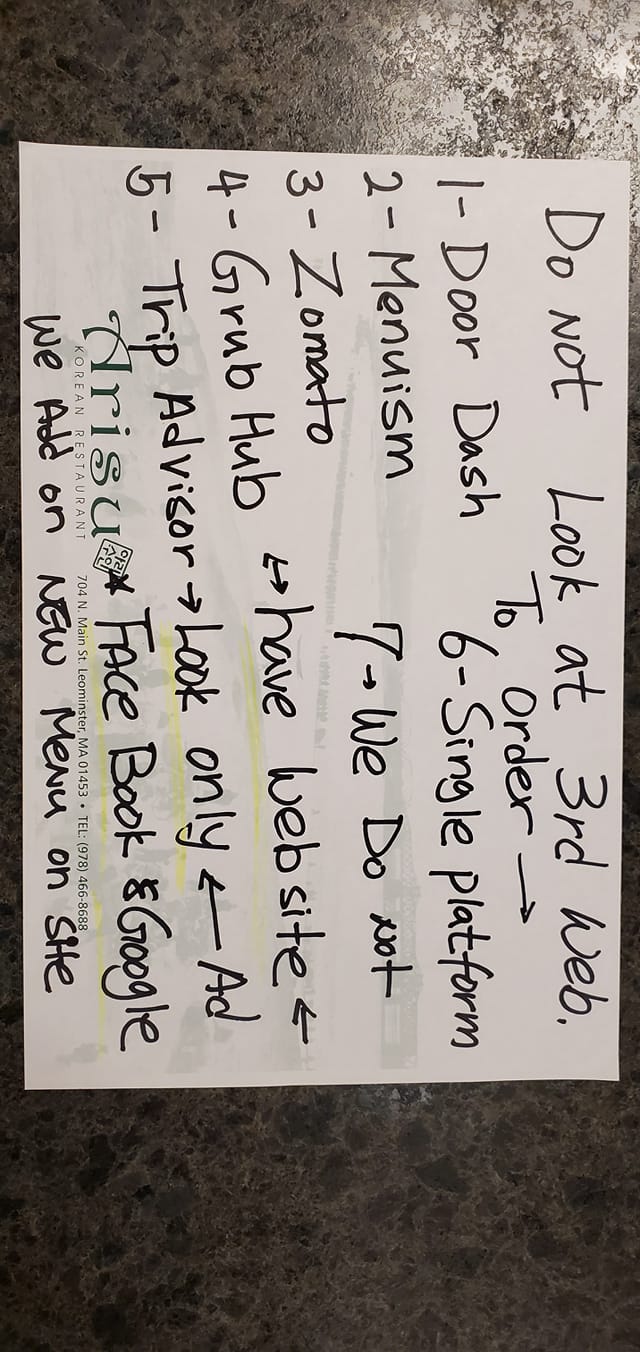 Do Not Look at 3rd Web.
To Order →
1- Door Dash 6- Single platform
2- Menuism 7→ We Do Not
3- Zomato ↔ have website ←
4- Grub Hub
5- Trip Advisor → Look only ← Ad
* FACE Book & Google
Arisu 아리수
KOREAN RESTAURANT 704 N. Main St. Leominster, MA 01453 • TEL: (978) 466-8688
We Add on NEW MENU on Site